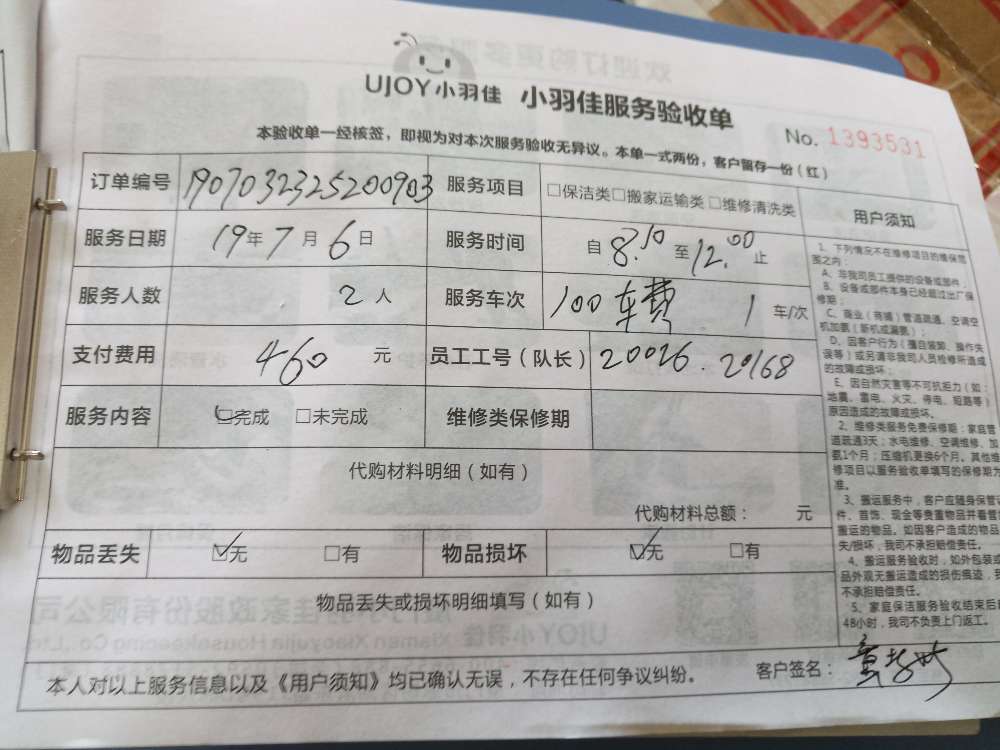 UJOY小羽佳 小羽佳服务验收单
No. 1393531
本验收单一经核签，即视为对本次服务验收无异议。本单一式两份，客户留存一份（红）
订单编号 1907032325200903 服务项目 □保洁类□搬家运输类□维修清洗类
服务日期 19年7月6日 服务时间 自8:10至12:00止
服务人数 2人 服务车次 100车费 1车/次
支付费用 460元 员工工号（队长） 20026. 20168
服务内容 ☑完成 □未完成 维修类保修期
代购材料明细（如有）
代购材料总额： 元
物品丢失 ☑无 □有 物品损坏 ☑无 □有
物品丢失或损坏明细填写（如有）
本人对以上服务信息以及《用户须知》均已确认无误，不存在任何争议纠纷。
客户签名：
用户须知
1、下列情况不在维修项目的维保范
围之内：
A、非我司员工提供的设备或部件，
B、设备或部件本身已经超过出厂保
修期；
C、商业（商铺）管道疏通、空调空
机加氨（新机或漏氨）；
D、因客户行为（擅自装卸、操作失
误等）或另请非我司人员检修所造成
的故障或损坏；
E、因自然灾害等不可抗拒力（如：
地震、雷电、火灾、停电、短路等）
原因造成的故障或损坏。
2、维修类服务免费保修期：家庭管
道疏通3天；水电维修、空调维修、加
氨1个月；压缩机更换6个月。其他维
修项目以服务验收单填写的保修期为
准。
3、搬运服务中，客户应随身保管
件、首饰、现金等贵重物品并看管
搬运的物品。如因客户造成的物品
失/损坏，我司不承担赔偿责任。
4、搬运服务验收时，如外包装或
品外观无搬运造成的损伤痕迹，我
不承担赔偿责任。
5、家庭保洁服务验收结束后
48小时，我司不负责上门返工。